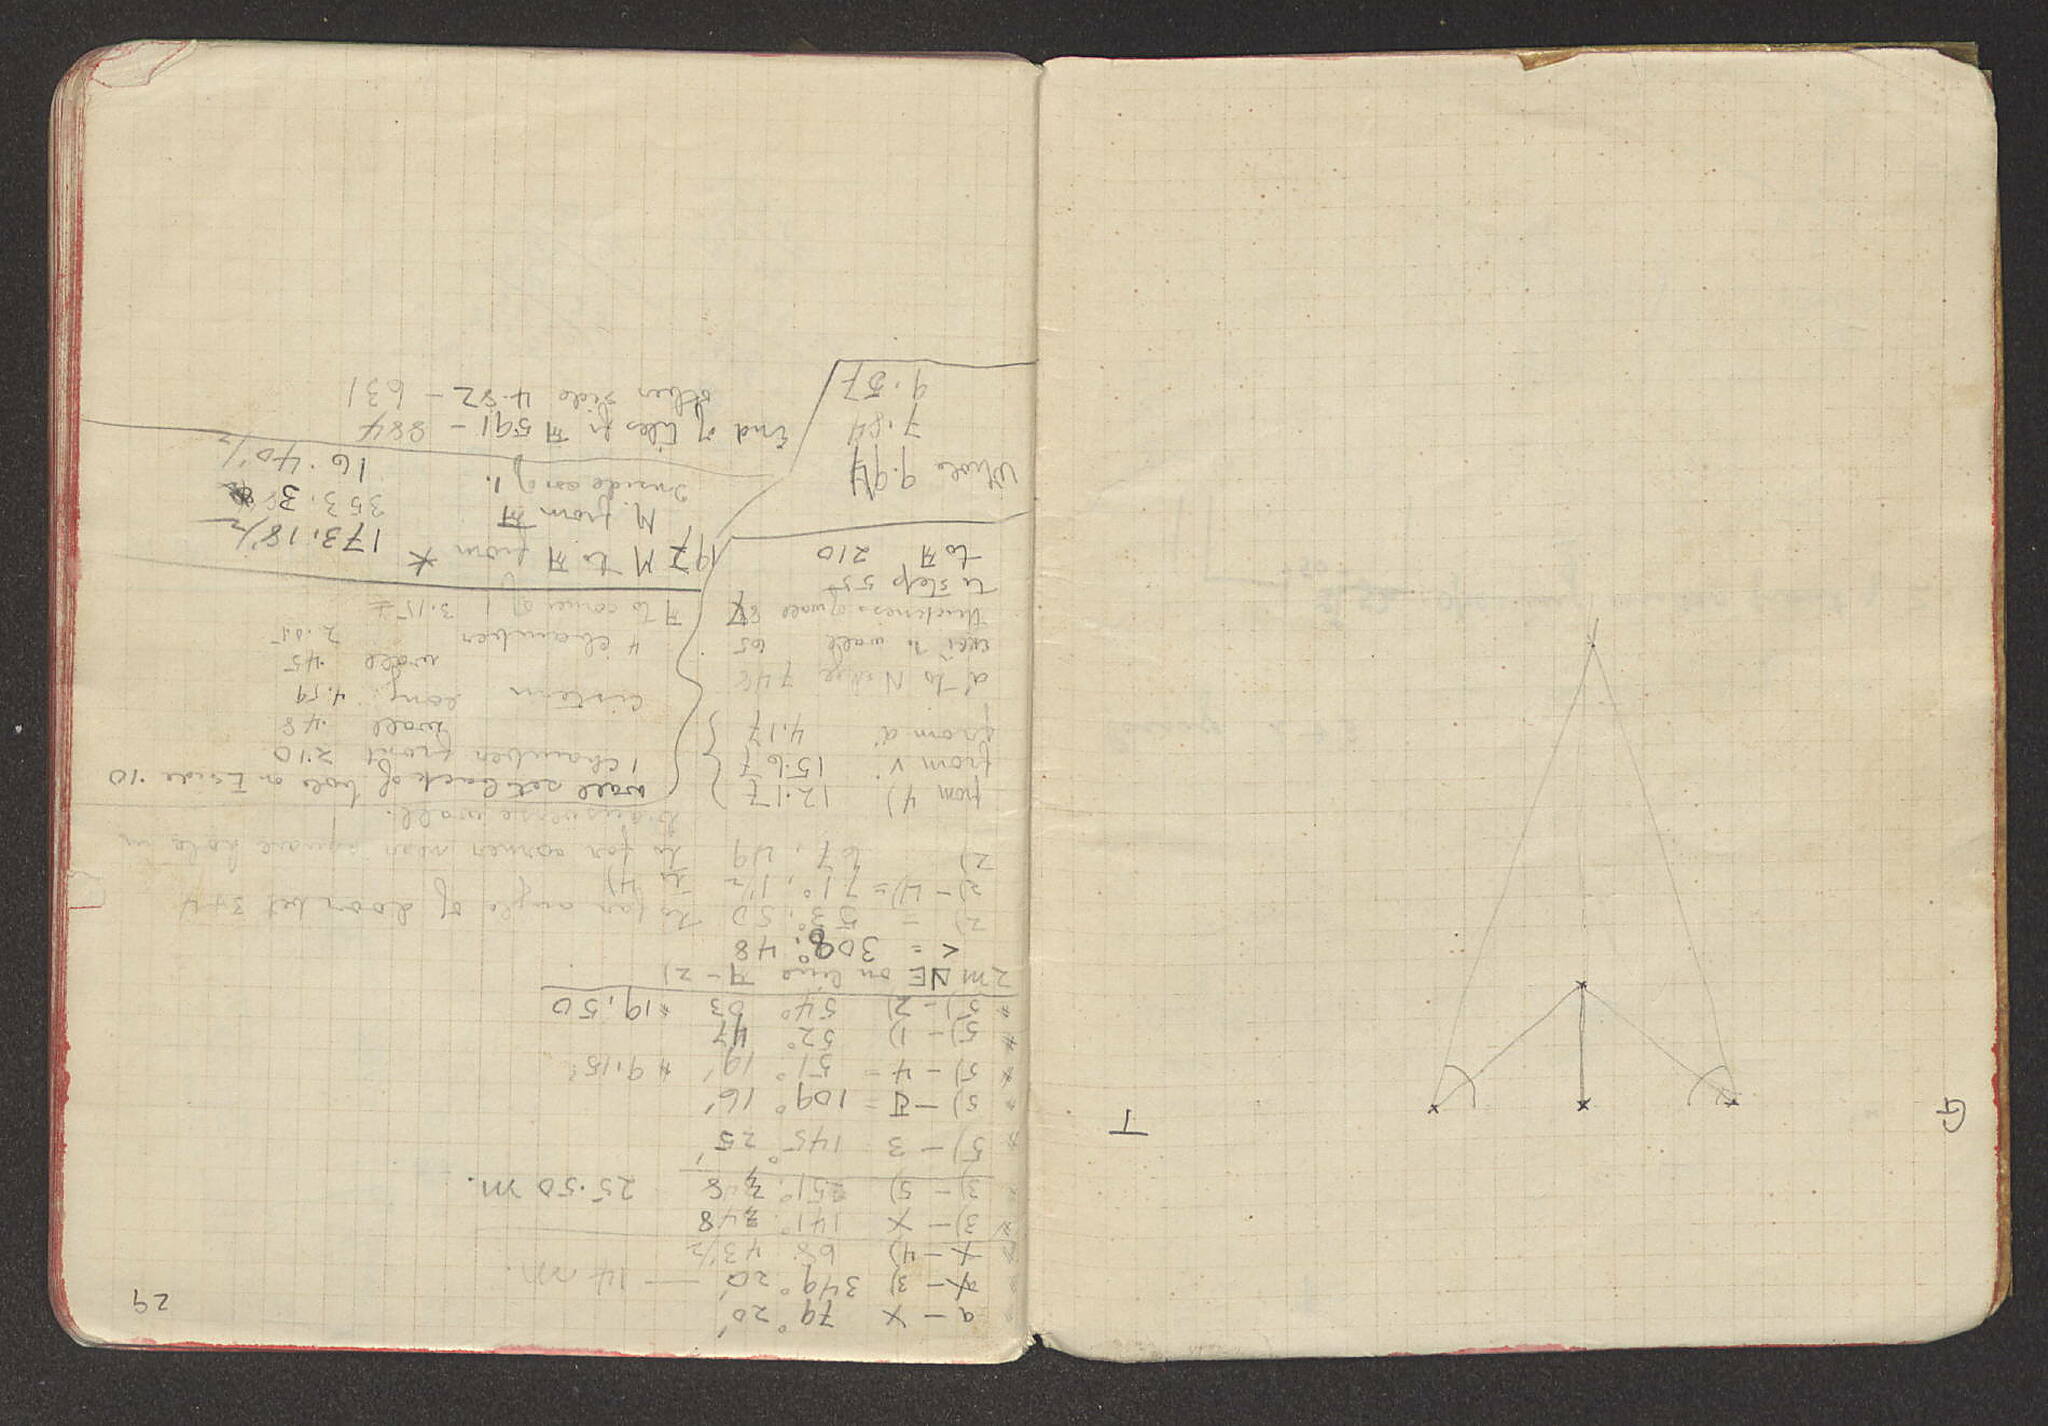 29
a - X 79° 20'
X - 3) 349° 20' — 14 m.
X - 4) 68. 43 1/2
3) - X 141°. 48
3) - 5) 251°. 48 25.50 m.
5) - 3 145° 25'
5) - = 109° 16'
5) - 4 = 51° 19' * 9.15
5) - 1) 52° 47
5) - 2) 54° 03 * 19.50
2 m NE on line - 2)
< = 308°. 48
2) = 53° 50 to far angle of door bet 3+4
2) - 4) = 71°. 1 1/2 to 4)
2) 67. 49 to far corner nr square hole in
transverse wall.
from 4) 12.17
from v. 15.67
from a' 4.17
a' to N edge 748
to wall 65
thickness of wall 87
to step 55
to A 210
wall set back of hole on E side .10
1 chamber front 2.10
wall .48
cistern long. 4.59
wall .45
4 chamber 2.05
A to corner of 1 3.15 ±
197 M to A from * 173.18 1/2
M. from A 353.38
Inside cor of 1. 16.40 1/2
Whole 9.94
7.84
9.57
End of tiles fr A 591 - 884
other side 4.82 - 631
G
T